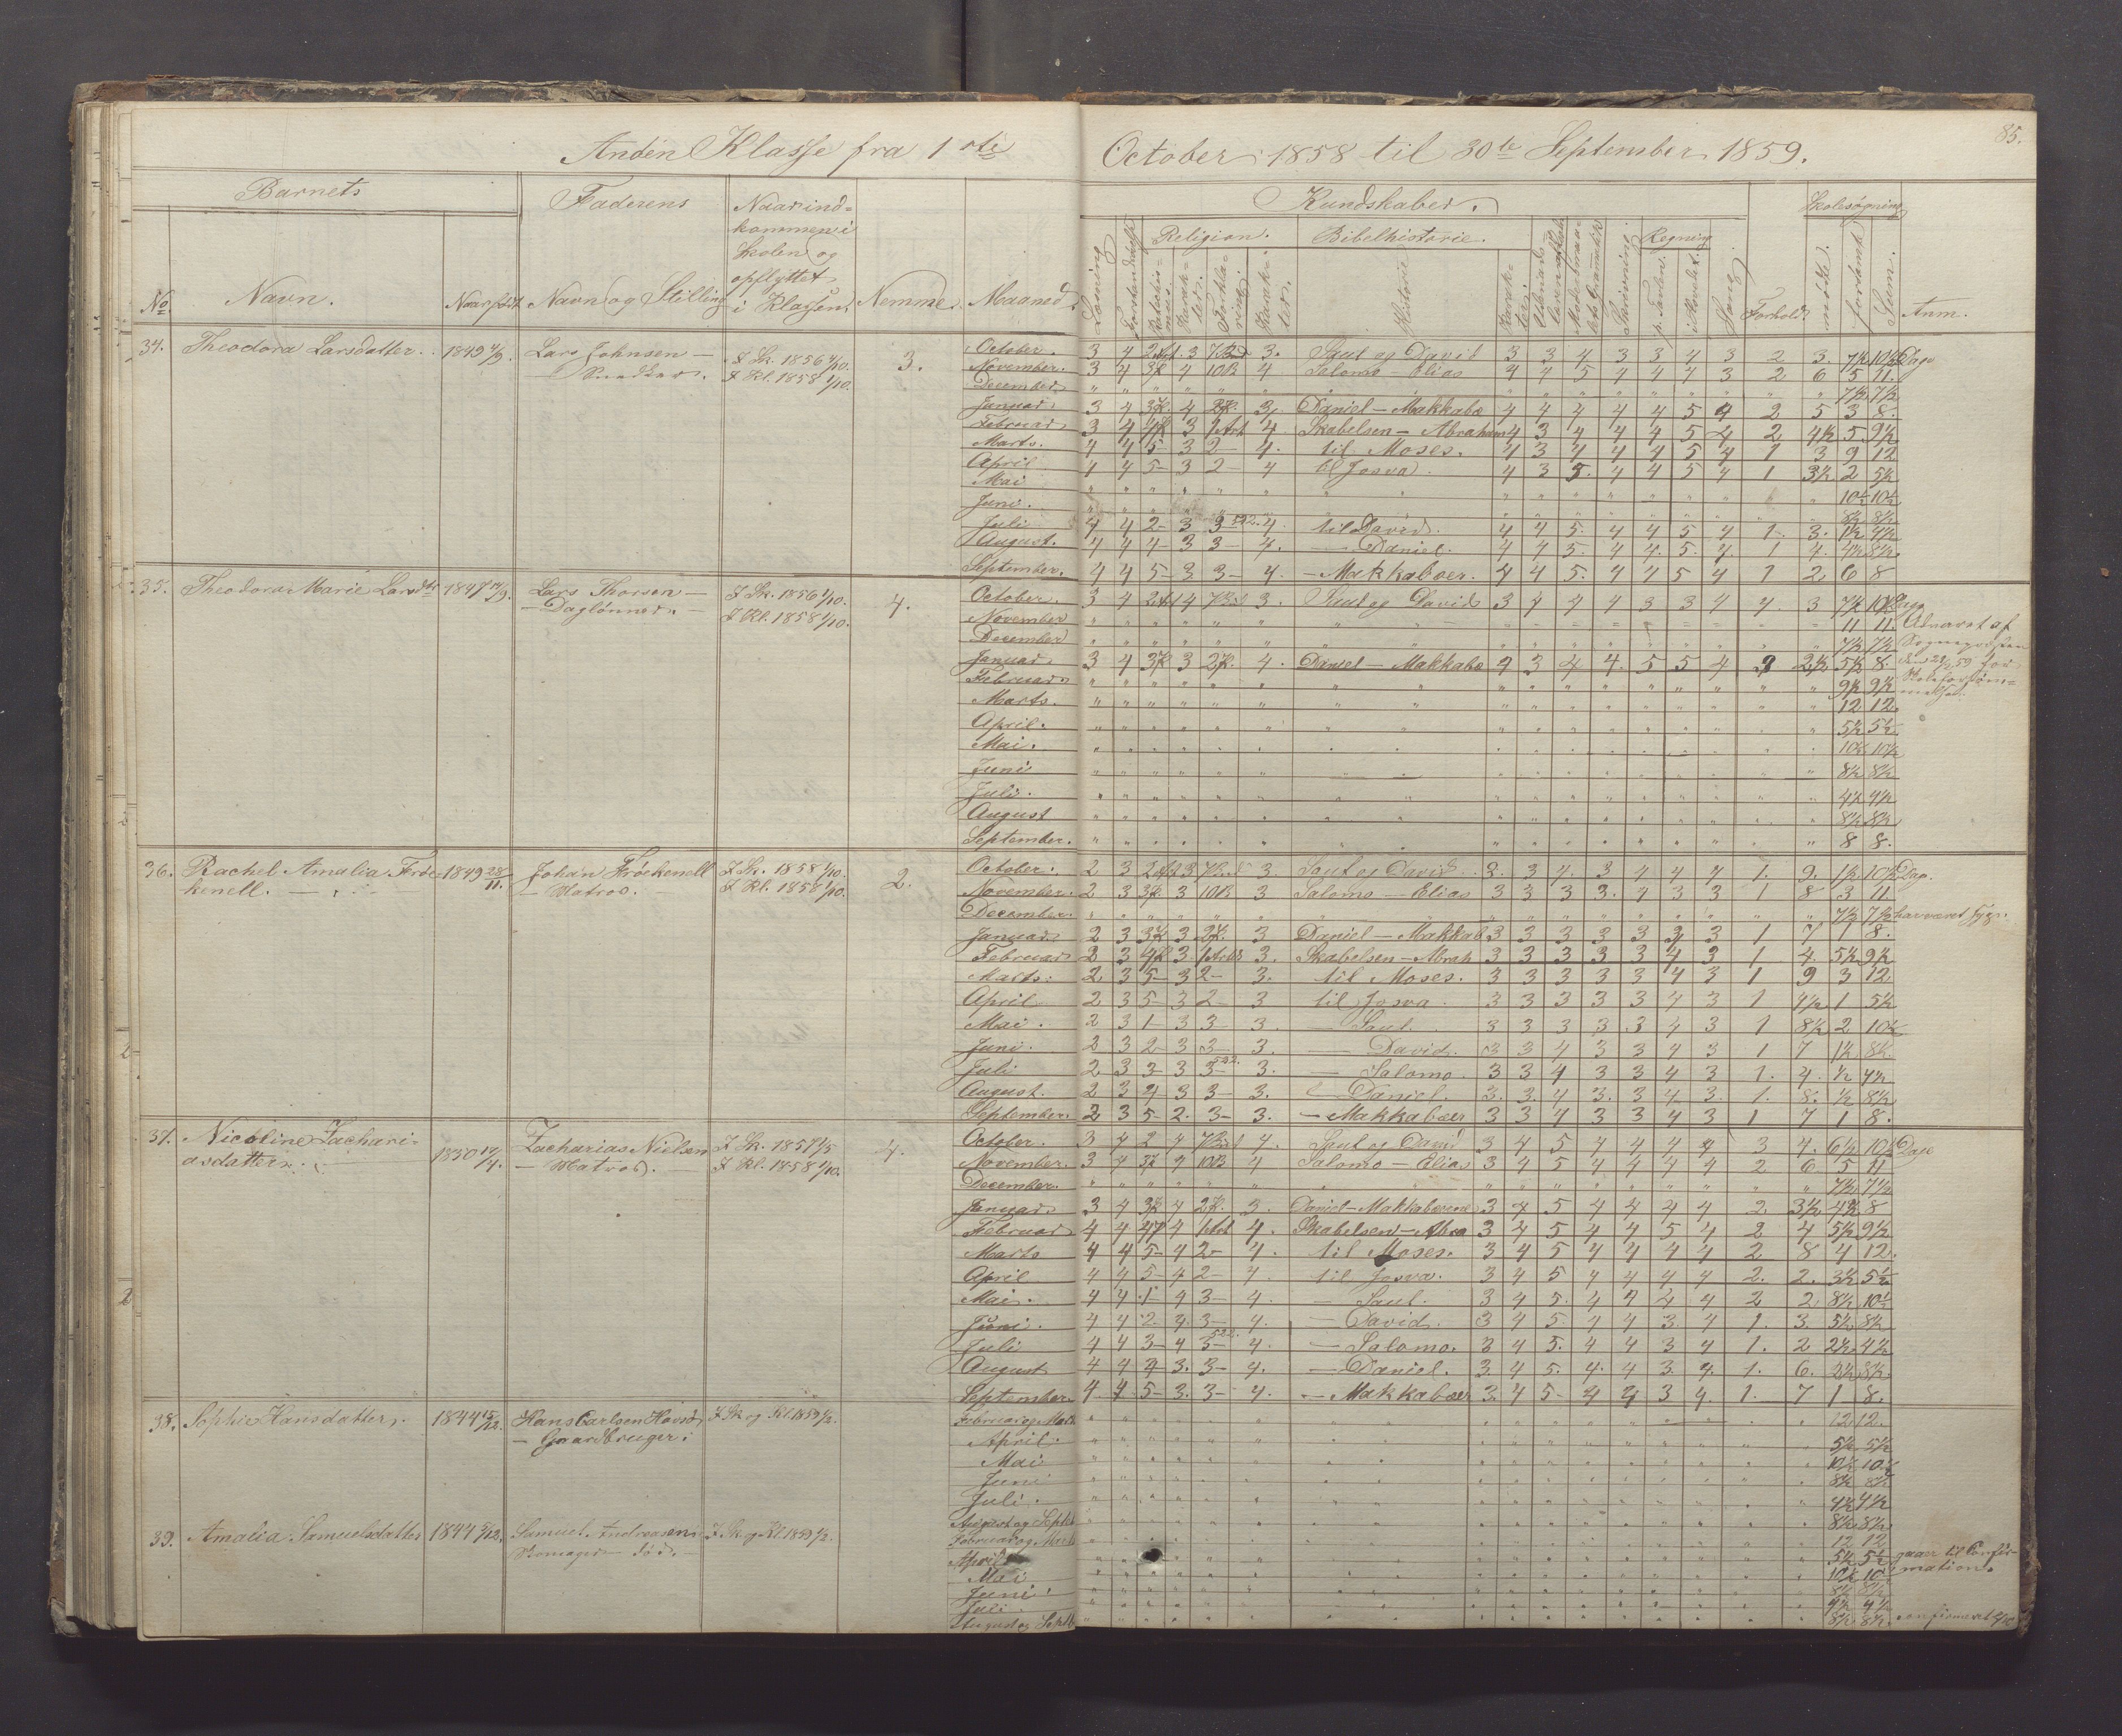 85.
Anden Klasse fra 1ste October 1858 til 30te September 1859.
Barnets Faderens Naar ind- Kundskaber. Skolesøgning
kommen i
Skolen og Religion. Bibelhistorie. Regning
opflyttet
No Navn. Naar født Navn og Stilling i Klassen Nemme. Maaned. Læsning Historie Skrivning p. Tavlen. Sang. Forhold. mødt. forsømt Sum. Anm.
34. Theodora Larsdatter. 1849 Lars Johnsen — I Sk. 1856 1/10. 3. October. 3 4 3. Saul og David 3 3 4 3 3 4 3 2 3. 7½ 10½ Dage
I Kl. 1858 1/10. November. 3 4 4 10B 4 Salomo — Elias 4 4 5 4 4 4 3 2 6 5 11.
December 7½ 7½
Januar. 3 4 4 3 Daniel — Makkabæ 4 4 4 4 4 5 4 2 5 3 8.
Februar 3 4 3 4 Skabelsen — Abraham 4 3 4 4 4 5 4 2 4½ 5 9½
Marts. 4 4 5 — 3 2 — 4. til Moses. 4 3 4 4 4 5 4 1 3 9 12
April 4 4 5 — 3 2 — 4 til Josva. 4 3 5. 4 4 5 4 1 3½ 2 5½
Mai 10½ 10½
Juni. 8½ 8½
Juli 4 4 2 — 3 3 522. 4. til David. 4 4 5. 4 4 5 4 1. 3. 1½ 4½
August. 4 4 4 — 3 3 — 4. — Daniel. 4 4 5. 4 4. 5. 4. 1 4. 4½ 8½.
September. 4 4 5 — 3 3 — 4. — Makkabæer. 4 4 5. 4 4 5 4 1 2 6 8
35. Theodora Marie Larsdtr 1847 Lars Thorsen — I Sk. 1856 1/10. 4. October. 3 4 4 3. Saul og David 3 4 4 4 3 3 4 4. 3 7½ 10½ Dage
— Daglønner. — I Kl. 1858 1/10. November 11 11. Advaret af
December 7½ 7½ Sognepræsten
Januar. 3 4 3 4. Daniel — Makkabæ 4 3 4 4. 5 5 4 2½ 5½ 8. for
Februar. 9½ 9½ Skoleforsøm-
Marts. 12 12. melse.
April. 5½ 5½
Mai. 10½ 10½
Juni 8½ 8½
Juli. 4½ 4½
August 8½ 8½
September. 8 8.
36. Rachel Amalia Frøc- 1849 28/11. Johan Frøckenell I Sk. 1858 1/10. 2. October. 2 3 3. Saul og David 3. 3 4. 3 4 4 4 1. 9. 1½ 10½ Dag.
kenell. — — Matros. — I Kl. 1858 1/10. November. 2 3 3 10B 3 Salomo — Elias 3 3 3 3. 4 3 3 1 8 3 11.
December. 7½ 7½ har været syg.
Januar. 2 3 3 3 Daniel — Makkab 3 3 3 3 3 3 3 1 7 1 8.
Februar 2 3 3 3. Skabelsen — Abrah 3 3 3 3 3 4 3 1 4. 5½ 9½
Marts. 2 3 5 — 3 2 — 3. til Moses. 3 3 3 3 3 4 3 1 9 3 12
April 2 3 5 — 3 2 — 3 til Josva 3 3 3 3 3 4 3 1 4½ 1 5½
Mai. 2 3 1 — 3 3 — 3. — Saul. 3 3 3 3 3 4 3 1 8½ 2 10½
Juni. 2 3 2 — 3 3 — 3. — David. 3 3 4 3 3 4 3 1 7 1½ 8½.
Juli 2 3 3 — 3 3 522. 3. — Salomo. 3 3 4 3 3 4 3 1. 4. ½ 4½
August. 2 3 4 — 3 3 — 3. — Daniel. 3. 3. 4 3. 3 4 3. 1. 8. ½ 8½
September. 2 3 5 — 2. 3 — 3. — Makkabæer 3 3 4 3 3 4 3 1 7 1 8.
37. Nicoline Zachari- 1850 Zacharias Nielsen I Sk. 1857 1/5 4. October. 3 4 2 4 4. Saul og David 3 4 5 4 4 4 4 3 4. 6½ 10½ Dage
asdatter. — Matros. — I Kl. 1858 1/10. November. 3 4 4 10B 4 Salomo — Elias 3 4 5 4 4 4 4 2 6 5 11
December. 7½ 7½
Januar. 3 4 4 3. Daniel — Makkabæerne 3 4 5 4 4 4 4 2 3½ 4½ 8
Februar 4 4 4 4. Skabelsen — Abra 3 4 5 4 4 5 4 2 4 5½ 9½
Marts 4 4 5 — 4 2 — 4. til Moses. 3 4 5 4 4 4 4 2 8 4 12.
April 4 4 5 — 4 2 — 4. til Josva. 3 4 5 4 4 4 4 2. 2. 3½ 5½
Mai. 4 4 1 — 4 3 — 4. — Saul. 3 4 5. 4 4 4 4 2 2 8½ 10½
Juni. 4 4 2 — 4 3 — 4. — David. 3 4 5 4 4 3 4 1. 3 5½ 8½
Juli 4 4 3 — 4 3 522. 4. — Salomo. 3 4 5. 4 4 3 4 1. 2 2½ 4½
August 4 4 4 3. 3 — 4. — Daniel. 3. 4 5. 4. 4 3. 4. 1. 6. 2½ 8½.
September. 4 4 5 — 3. 3 — 4. — Makkabæer 3. 4 5 — 4 4 3 4. 1. 7 1 8.
38. Sophie Hansdatter. 1844 15/12. Hans Carlsen I Sk og Kl 1859 1/2. Februar og Marts 12 12.
— Gaardbruger. April. 5½ 5½
Mai 10½ 10½
Juni 8½ 8½
Juli. 4½ 4½
August og Septbr 8½ 8½
39. Amalia Samuelsdatter 1844 5/12. Samuel Andreasen I Sk og Kl 1859 1/2. Februar og Marts 12 12
Skomager død. — April 5½ 5½ gaar til Confir-
Mai 10½ 10½ mation.
Juni. 8½ 8½
Juli. 4½ 4½
August og Septbr 8½ 8½. confirmeret